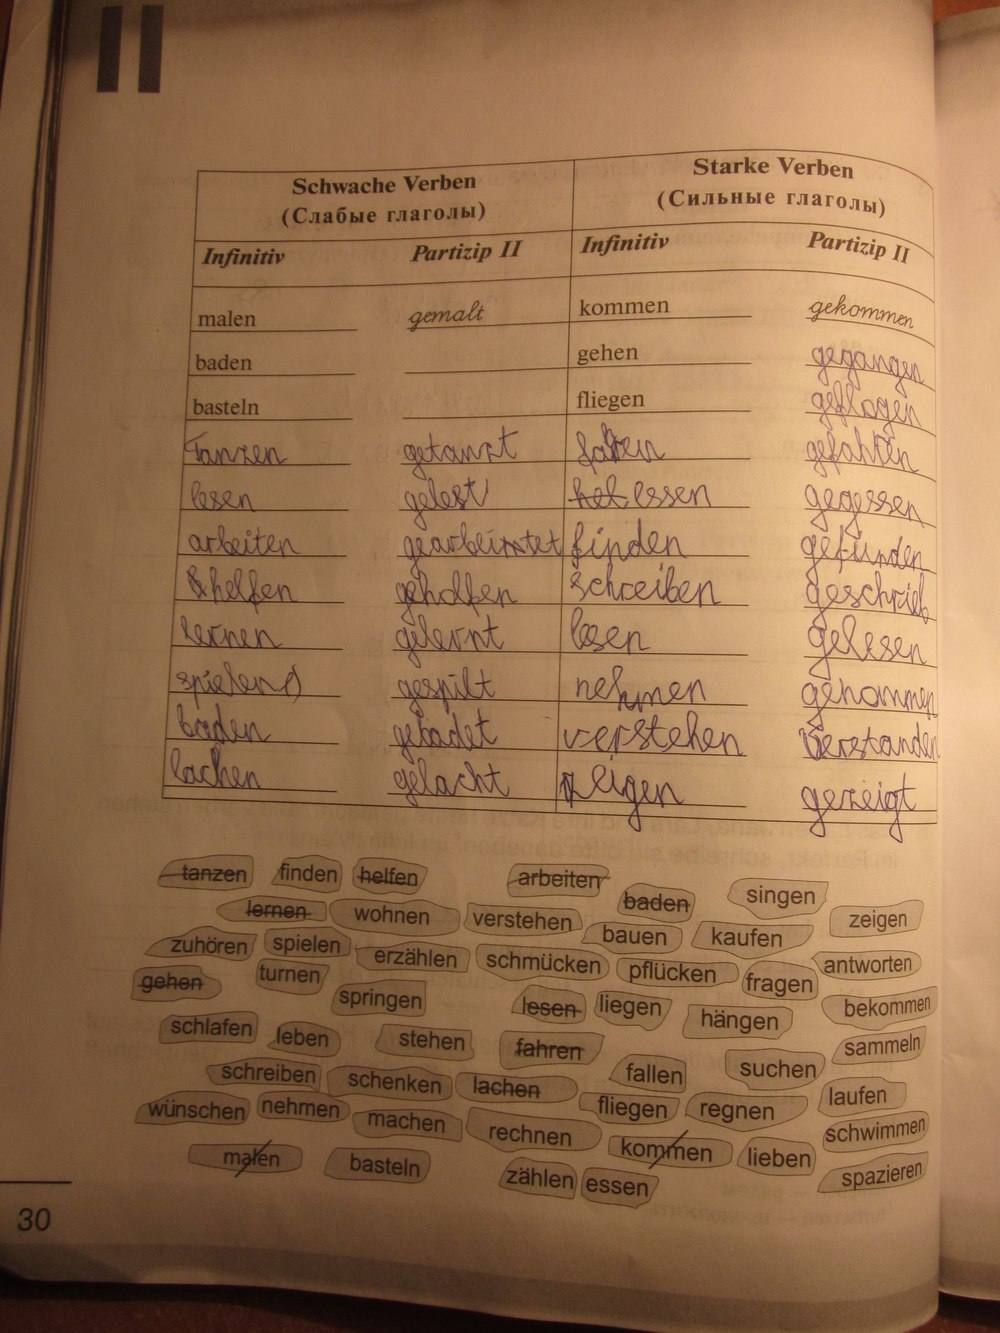 II
Schwache Verben Starke Verben
(Слабые глаголы) (Сильные глаголы)
Infinitiv Partizip II Infinitiv Partizip II
malen gemalt kommen gekommen
baden gehen gegangen
basteln fliegen geflogen
Tanzen getanzt gefahren
lesen gelest essen gegessen
arbeiten finden gefunden
helfen geholfen schreiben geschrieb
lernen gelernt lesen gelesen
spielen gespilt nehmen genommen
baden gebadet verstehen verstanden
lachen gelacht zeigen gezeigt
tanzen finden helfen arbeiten baden singen
lernen wohnen verstehen bauen kaufen zeigen
zuhören spielen erzählen schmücken pflücken fragen antworten
gehen turnen springen lesen liegen hängen bekommen
schlafen leben stehen fahren fallen suchen sammeln
schreiben schenken lachen fliegen regnen laufen
wünschen nehmen machen rechnen kommen lieben schwimmen
malen basteln zählen essen spazieren
30